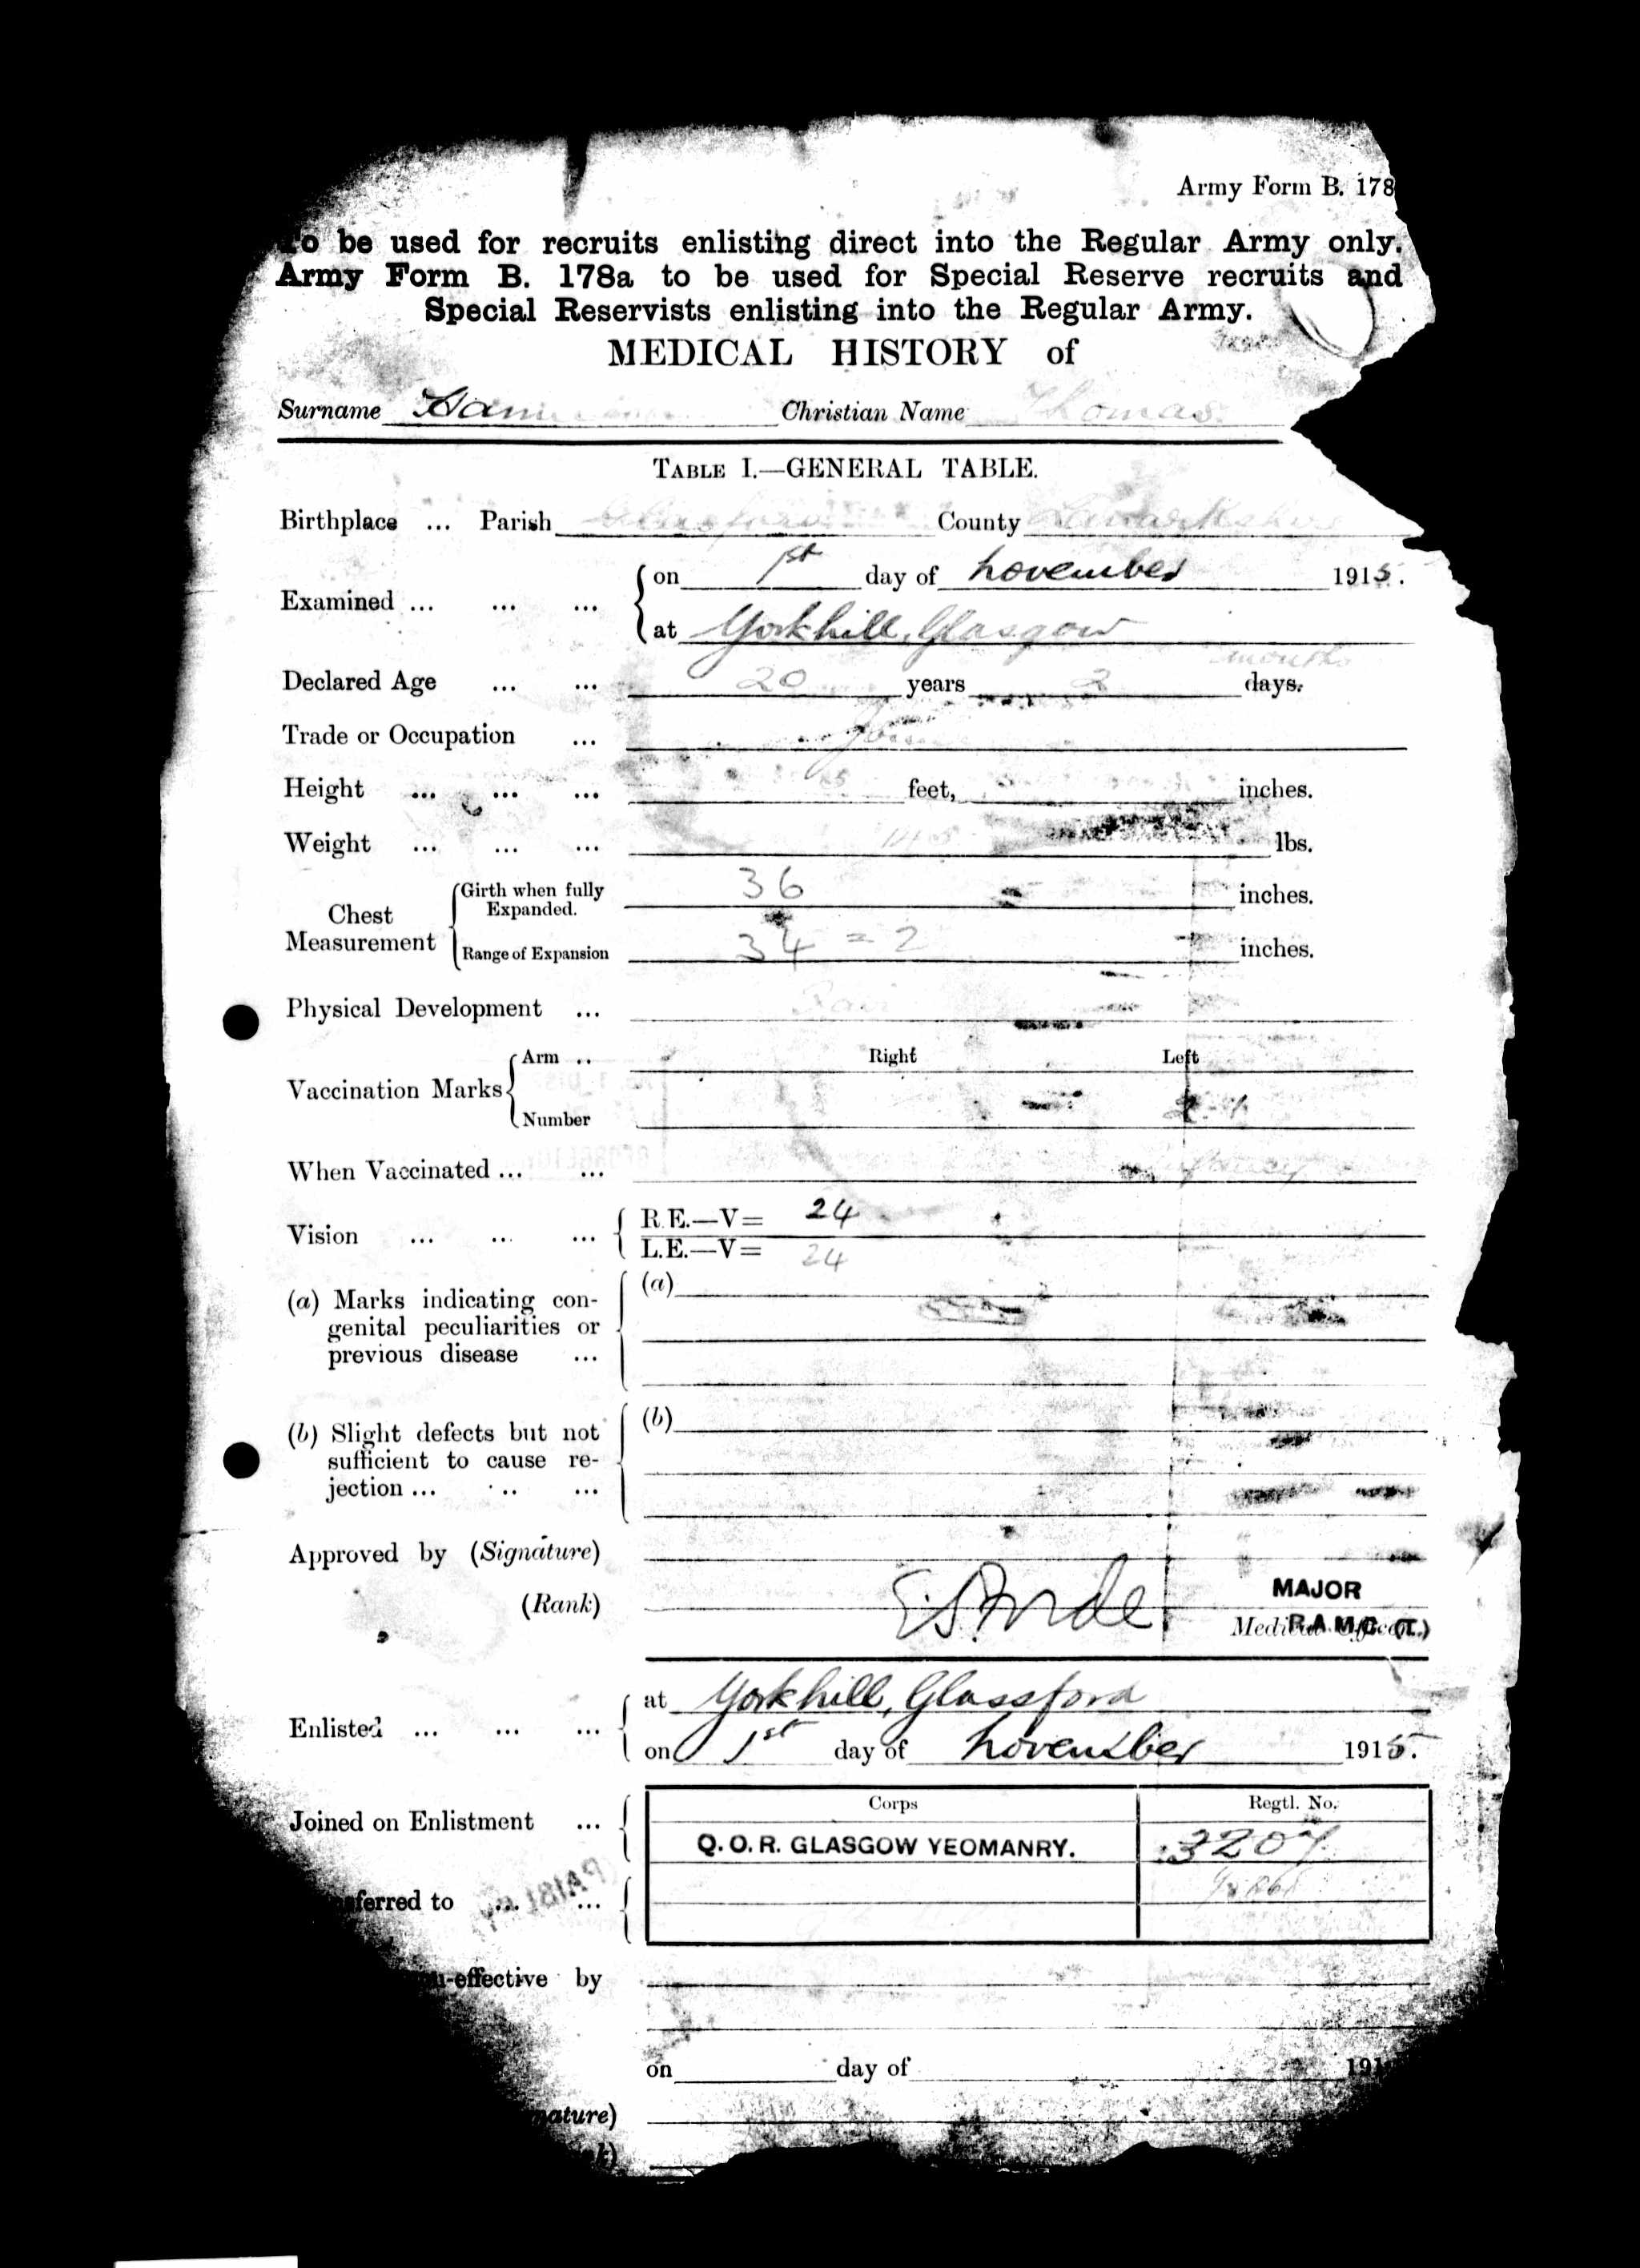 Army Form B. 178
To be used for recruits enlisting direct into the Regular Army only.
Army Form B. 178a to be used for Special Reserve recruits and
Special Reservists enlisting into the Regular Army.
MEDICAL HISTORY of
Surname Christian Name Thomas
TABLE I.—GENERAL TABLE.
Birthplace ... Parish Glassford County Lanarkshire
Examined ... ... ... on 1st day of November 1915.
at Yorkhill, Glasgow
months
Declared Age ... ... 20 years 2 days.
Trade or Occupation ...
Height ... ... ... 5 feet, inches.
Weight ... ... ... lbs.
Chest Measurement Girth when fully Expanded. 36 inches.
Range of Expansion 34 = 2 inches.
Physical Development ... Fair
Vaccination Marks Arm .. Right Left
Number
When Vaccinated ... ... Infancy
Vision ... ... ... R.E.—V= 24
L.E.—V= 24
(a) Marks indicating con- (a)
genital peculiarities or
previous disease ...
(b) Slight defects but not (b)
sufficient to cause re-
jection ... ... ...
Approved by (Signature)
(Rank) MAJOR
Medical Officer. R.A.M.C. (T.)
Enlisted ... ... ... at Yorkhill, Glassford
on 1st day of November 1915.
Corps Regtl. No.
Joined on Enlistment ... Q.O.R. GLASGOW YEOMANRY. 3207
sferred to ... ...
n-effective by
on day of 191
nature)
k)